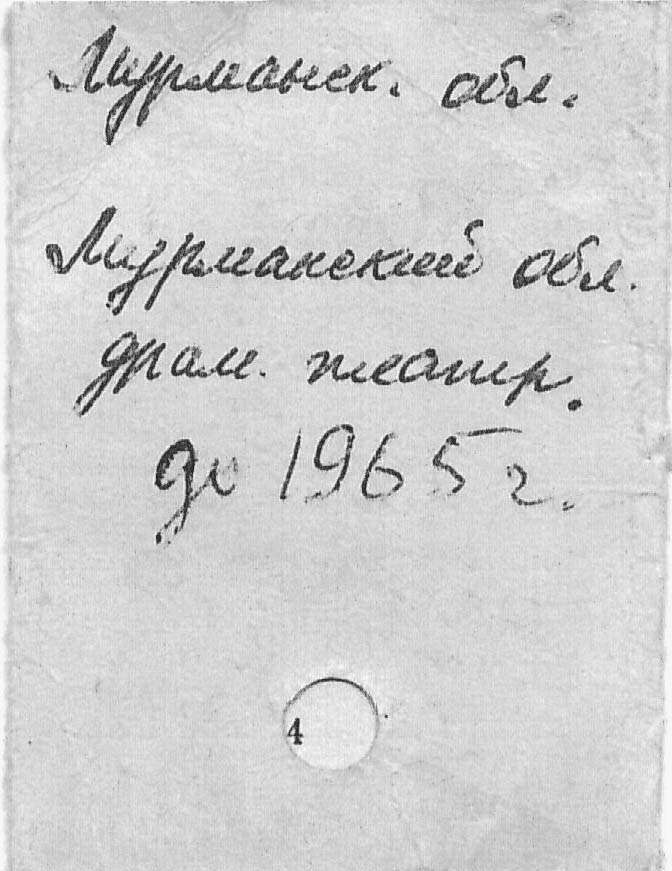 Мурманск. обл.
Мурманский обл.
драм. театр.
до 1965 г.
4